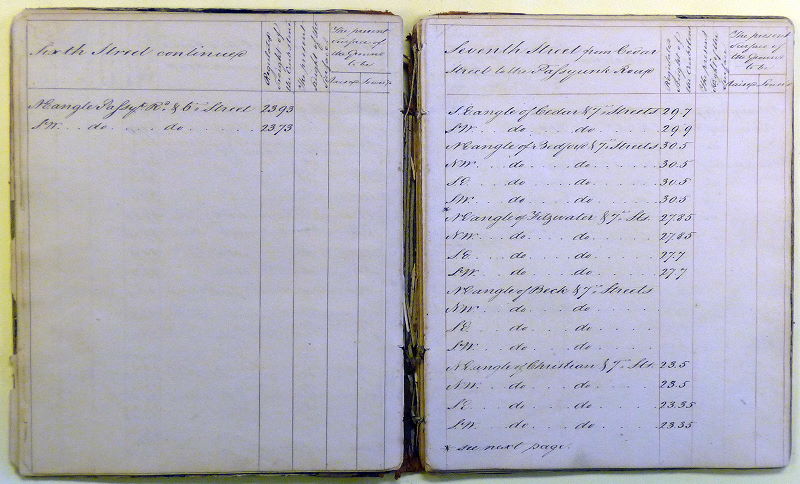 Sixth Street continued
Regulated height of the Curbstone
The present height of the Surface
The present
surface of
the Ground
to be
Raised Lowered
N.E angle Passyk. Rd. & 6th. Street 23.93
S.W. do do 23.73
Seventh Street from Cedar
Street to the Passyunk Road
Regulated height of the Curbstone
The present height of the Surface
The present
surface of
the Ground
to be
Raised Lowered
S.E angle of Cedar & 7th. Streets 29.7
S.W. do do 29.9
N.E angle of Bedford & 7th. Streets 30.5
N.W. do do 30.5
S.E. do do 30.5
S.W. do do 30.5
* N.E angle of Fitzwater & 7th. Sts. 27.85
N.W. do do 27.85
S.E. do do 27.7
S.W. do do 27.7
N.E angle of Beck & 7th. Streets
N.W. do do
S.E. do do
S.W. do do
N.E angle of Christian & 7th. Sts. 23.5
N.W. do do 23.5
S.E. do do 23.35
S.W. do do 23.35
* see next page.